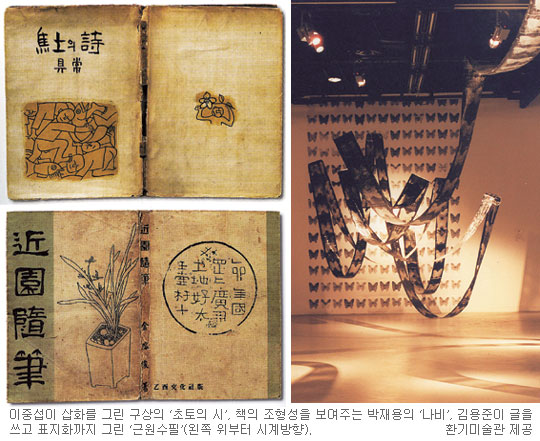 焦土의 詩
具常
近園隨筆
近園隨筆 金瑢俊 著
卯年國
罡上廣開
土地好太
王壺杅十
乙酉文化社版
이중섭이 삽화를 그린 구상의 ‘초토의 시’, 책의 조형성을 보여주는 박재용의 ‘나비’, 김용준이 글을
쓰고 표지화까지 그린 ‘근원수필’(왼쪽 위부터 시계방향). 환기미술관 제공